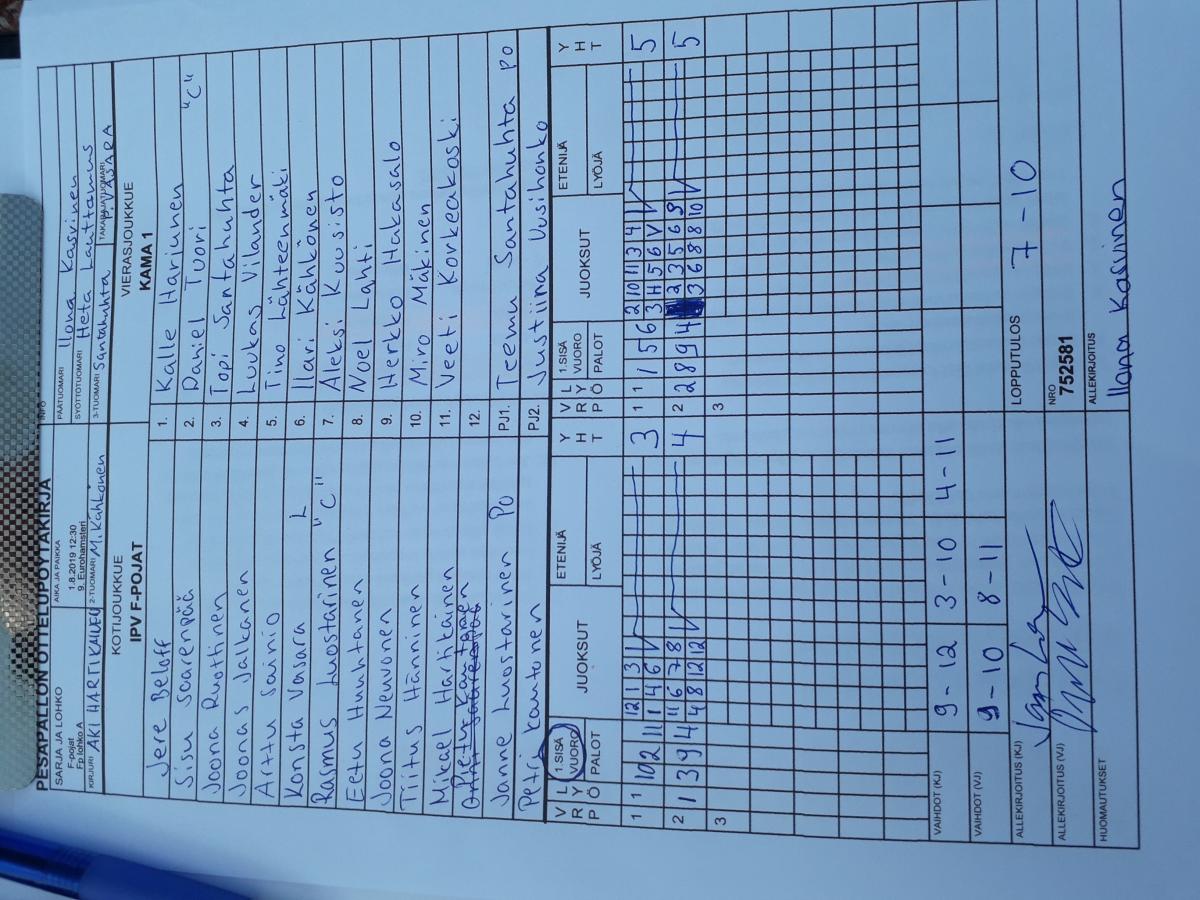 PESÄPALLON OTTELUPÖYTÄKIRJA
SARJA JA LOHKO
F-pojat
Fp lohko A
AIKA JA PAIKKA
1.8.2019 12:30
9. Eurohamsteri
INFO
PÄÄTUOMARI Ilona Kasvinen
SYÖTTÖTUOMARI Heta Lauttamus
KIRJURI AKI HARTIKAINEN 2-TUOMARI M. Kähkönen 3-TUOMARI Santahuhta TAKARAJATUOMARI
KOTIJOUKKUE
IPV F-POJAT
VIERASJOUKKUE
KAMA 1
Jere Beloff 1. Kalle Harjunen
Sisu Saarenpää 2. Daniel Tuori "C"
Joona Ruothinen 3. Topi Santahuhta
Joonas Jalkanen 4. Luukas Vilander
Arttu Sainio 5. Tino Lähteenmäki
Konsta Vasara L 6. Ilari Kähkönen
Rasmus Luostarinen "C" 7. Aleksi Kuusisto
Eetu Huuhtanen 8. Noel Lahti
Joona Nevonen 9. Herkko Hakasalo
Tiitus Hänninen 10. Miro Mäkinen
Mikael Hartikainen 11. Veeti Korkeakoski
12.
Janne Luostarinen PO PJ1. Teemu Santahuhta PO
Petri Kautonen PJ2. Justiina Uusihonko
V R P L Y Ö 1.SISÄ VUORO PALOT JUOKSUT ETENIJÄ LYÖJÄ Y H T V R P L Y Ö 1.SISÄ VUORO PALOT JUOKSUT ETENIJÄ LYÖJÄ Y H T
1 1 10 2 11 12 1 3 3 1 1 1 5 6 2 10 11 3 4 5
1 4 6 3 11 5 6 V
2 1 3 9 4 11 6 7 8 4 2 2 8 9 4 2 3 5 6 9 5
4 8 12 12 3 6 8 8 10
3 3
VAIHDOT (KJ) 9-12 3-10 4-11
VAIHDOT (VJ) 9-10 8-11
ALLEKIRJOITUS (KJ)
LOPPUTULOS 7-10
ALLEKIRJOITUS (VJ)
NRO
752581
HUOMAUTUKSET
ALLEKIRJOITUS
Ilona Kasvinen